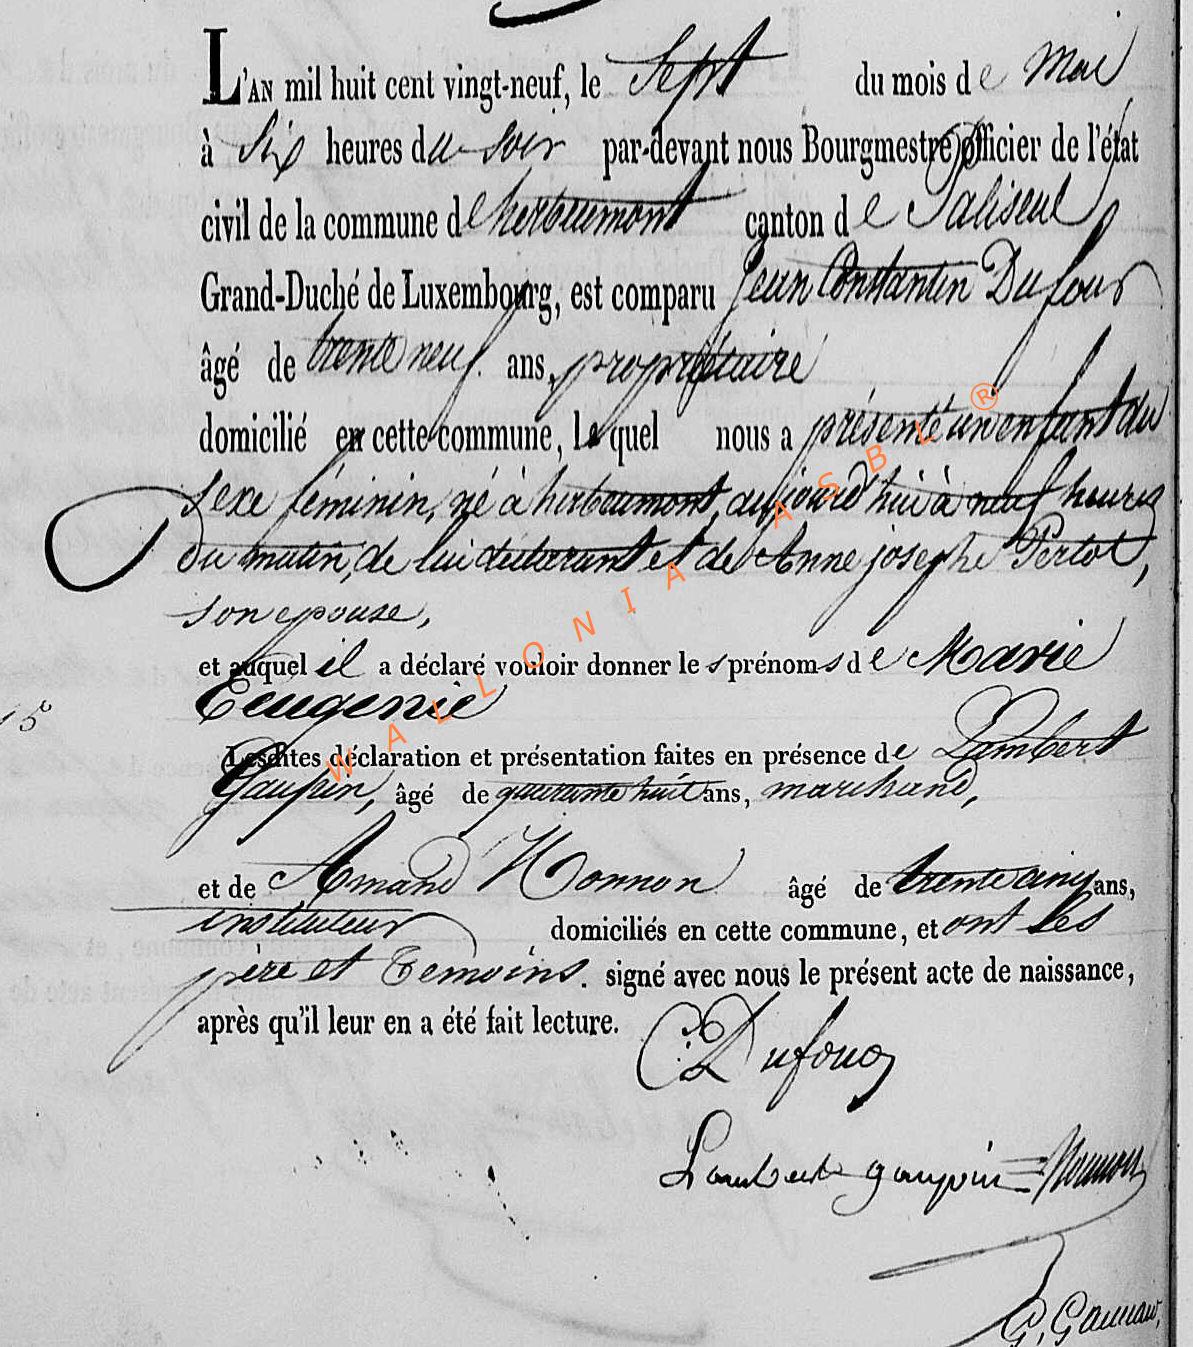 L'AN mil huit cent vingt-neuf, le Sept du mois de Mai
à Six heures du soir par-devant nous Bourgmestre Officier de l'état
civil de la commune de herbeumont canton de Paliseul
Grand-Duché de Luxembourg, est comparu Jean Constantin Dufour
âgé de trente neuf ans, propriétaire
domicilié en cette commune, le quel nous a présenté un enfant du
sexe féminin, né à herbeumont, aujourd'hui à neuf heures
du matin, de lui déclarant et de Anne josephe Perlot,
son epouse,
et auquel il a déclaré vouloir donner les prénoms de Marie
Eeugenie
15
Lesdites déclaration et présentation faites en présence de Lambert
Gaupin, âgé de quarante huit ans, marchand,
et de Amand Honnon âgé de trente cinq ans,
instituteur domiciliés en cette commune, et ont les
père et temoins. signé avec nous le présent acte de naissance,
après qu'il leur en a été fait lecture.
C Dufour
Lambert gaupin Honnon
WALLONIA ASBL ®